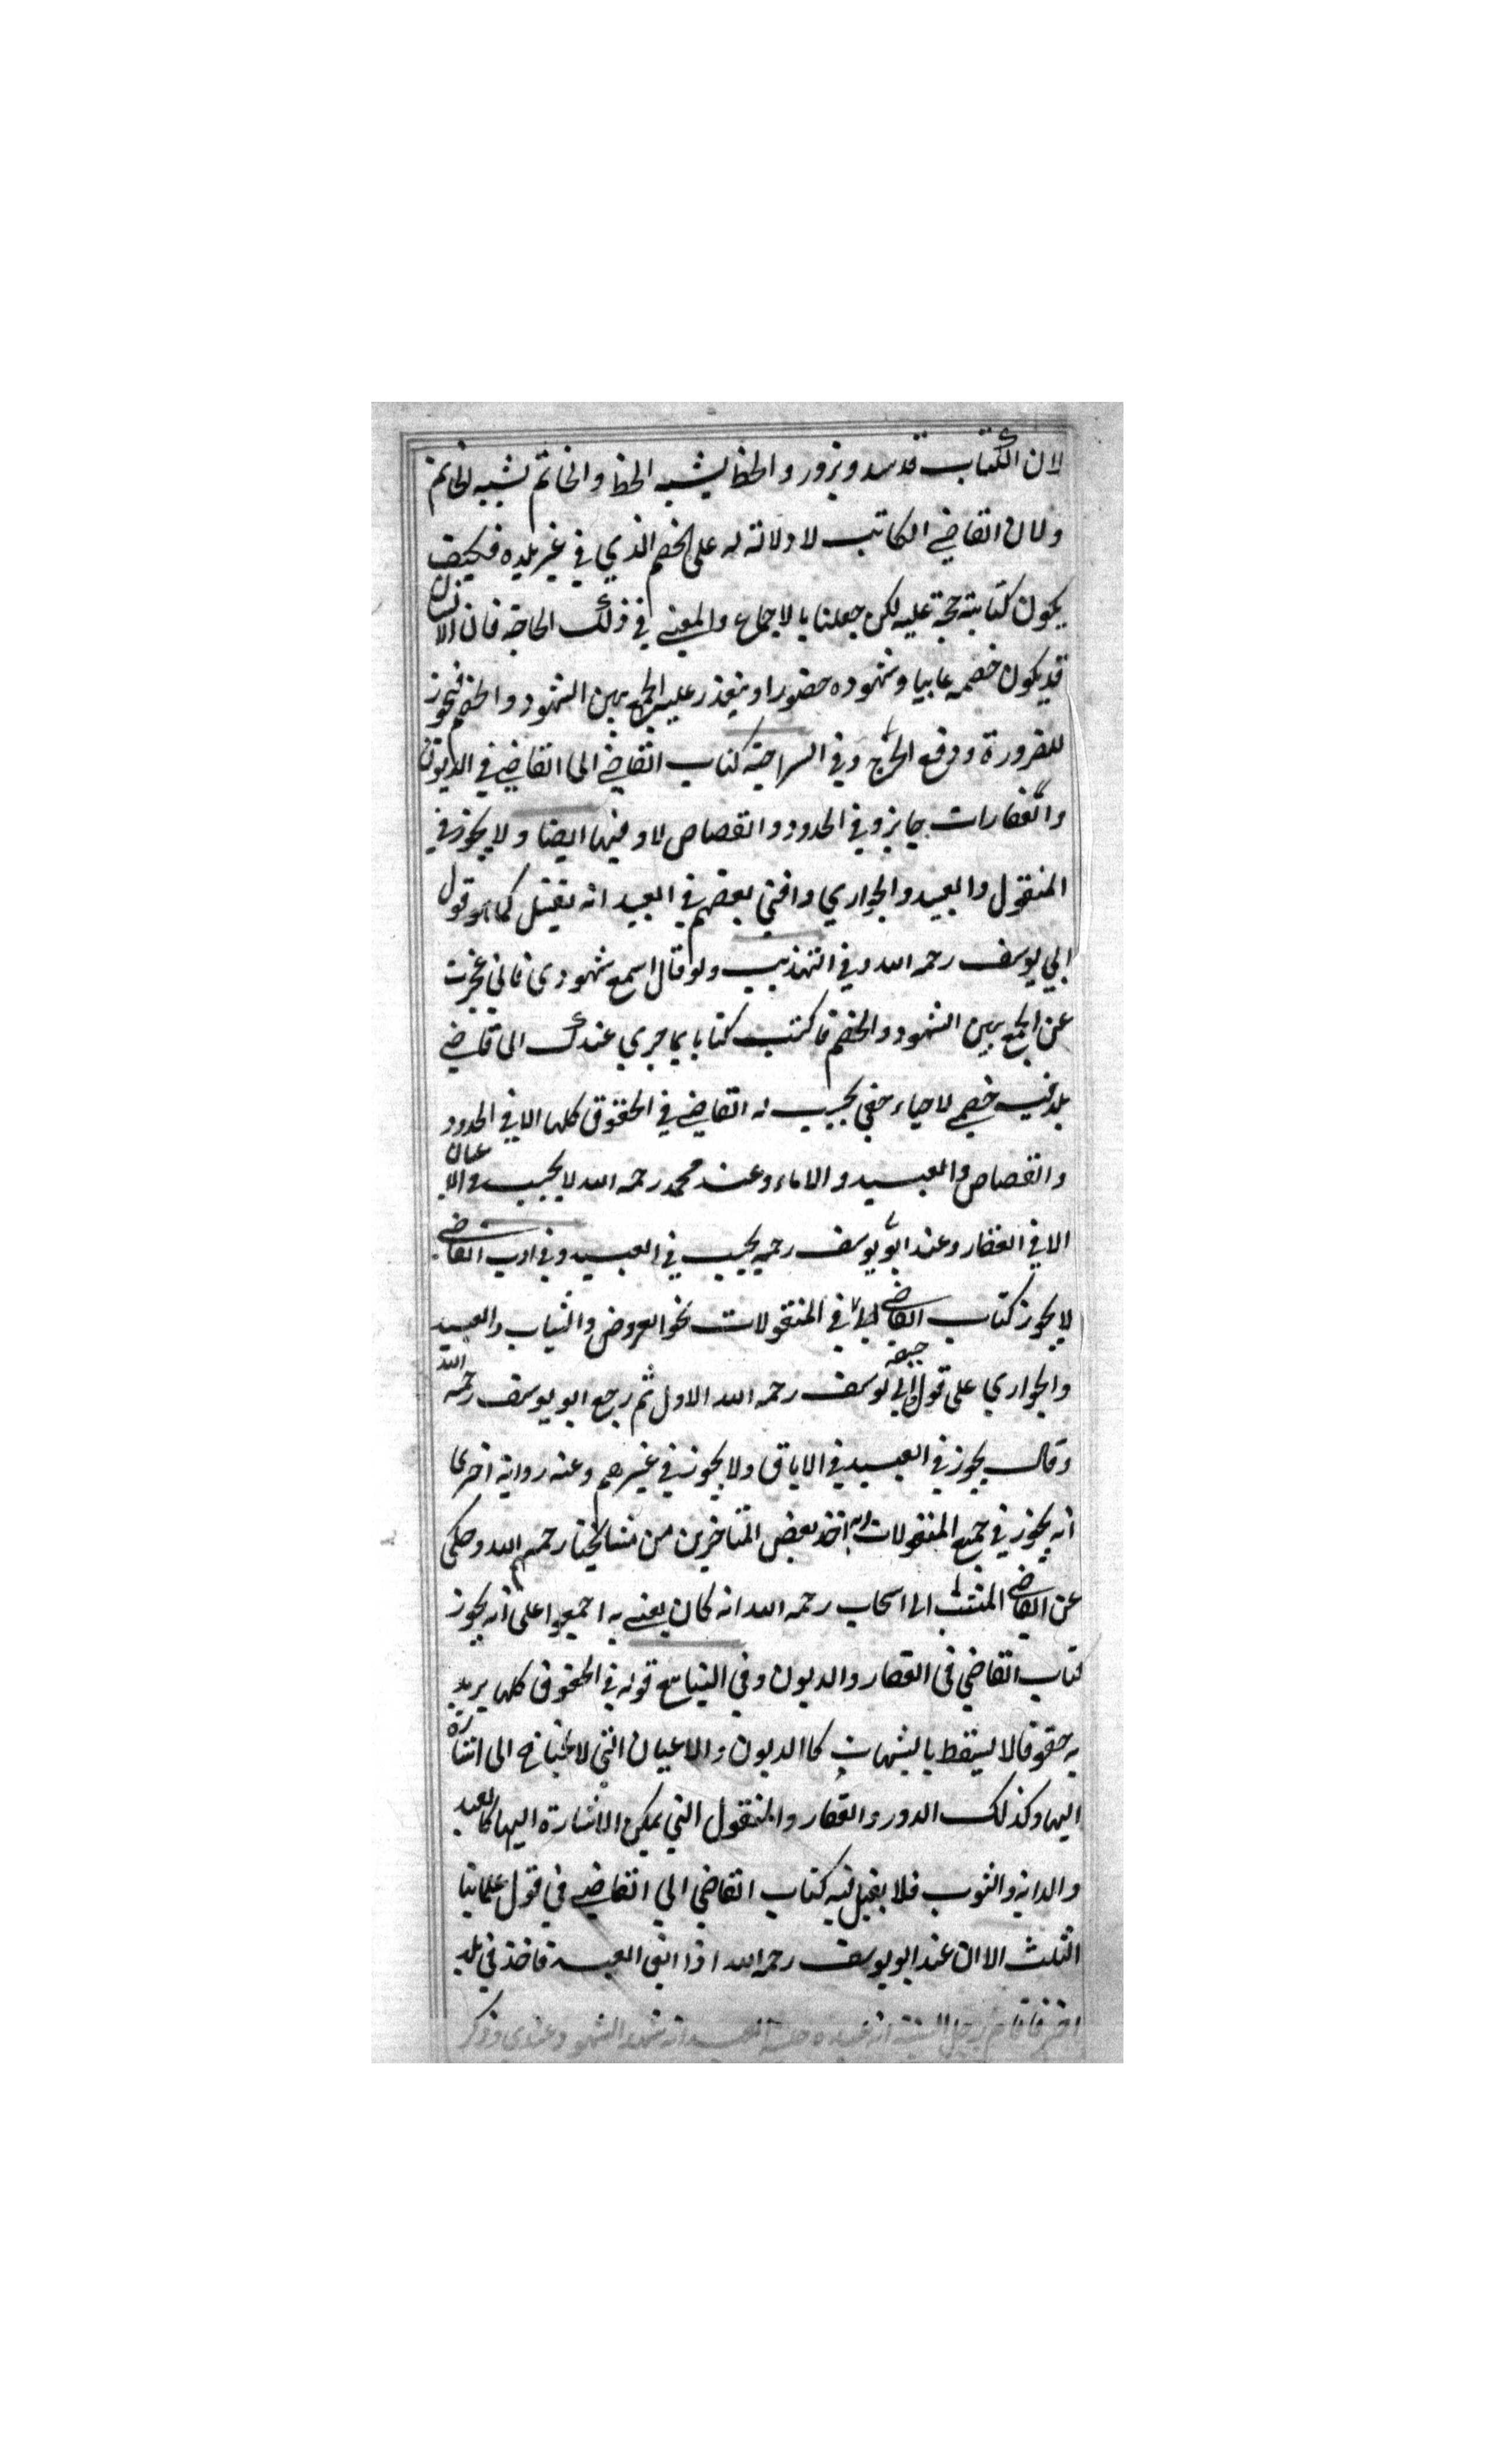 لان الكتاب قد ويزور والخط يشبه الخط والخاتم يشبه الخاتم
ولان القاضي الكاتب لا ولاية له على الخصم الذي في غير بلده فكيف
يكون كتابته حجة عليه لكن جعلنا بالاجماع والمعنى في ذلك الحاجة فان الانسان
قد يكون خصمه غايبا وشهوده حضورا ويتعذر عليه الجمع بين الشهود والخصم فيجوز
للضرورة ودفع الحرج وفي السراجية كتاب القاضي الى القاضي في الديون
والعقارات جايز وفي الحدود والقصاص لا وفيها ايضا ولا يجوز في
المنقول والعبيد والجواري وافتى بعضهم في العبيد انه يقبل كما هو قول
ابي يوسف رحمه الله وفي التهذيب ولو قال اسمع شهودي فاني عجزت
عن الجمع بين الشهود والخصم فاكتب كتابا بما جرى عندك الى قاضي
بلد فيه خصمي لاحياء حقي يجيب له القاضي في الحقوق كلها الا في الحدود
والقصاص والعبيد والاماء وعند محمد رحمه الله لا يجيب في الاعيان
الا في العقار وعند ابو يوسف رحمه يجيب في العبيد وفي ادب القاضي
لا يجوز كتاب القاضي في المنقولات نحو العروض والثياب والعبيد
والجواري على قول ابي يوسف رحمه الله الاول ثم رجع ابو يوسف رحمه الله
وقال يجوز في العبيد في الاباق ولا يجوز في غيرهم وعنه رواية اخرى
انه يجوز في جميع المنقولات وبه اخذ بعض المتاخرين من مشايخنا رحمهم الله وحكى
عن القاضي المنتسب الى اسحاب رحمه الله انه كان يفتي به اجمعوا على انه يجوز
كتاب القاضي في العقار والديون وفي الينابيع قوله في الحقوق كلها يريد
به حقوقا لا يسقط بالشبهات كالديون والاعيان التي لا يحتاج الى اشارة
اليها وكذلك الدور والعقار والمنقول التي يمكن الاشارة اليها كالعبد
والدابة والثوب فلا يقبل فيه كتاب القاضي الى القاضي في قول علمائنا
الثلث الا ان عند ابو يوسف رحمه الله اذا ابق العبد فاخذ في بلد
اخر فاقام رجل البينة انه عبده شهد الشهود عندي وذكر